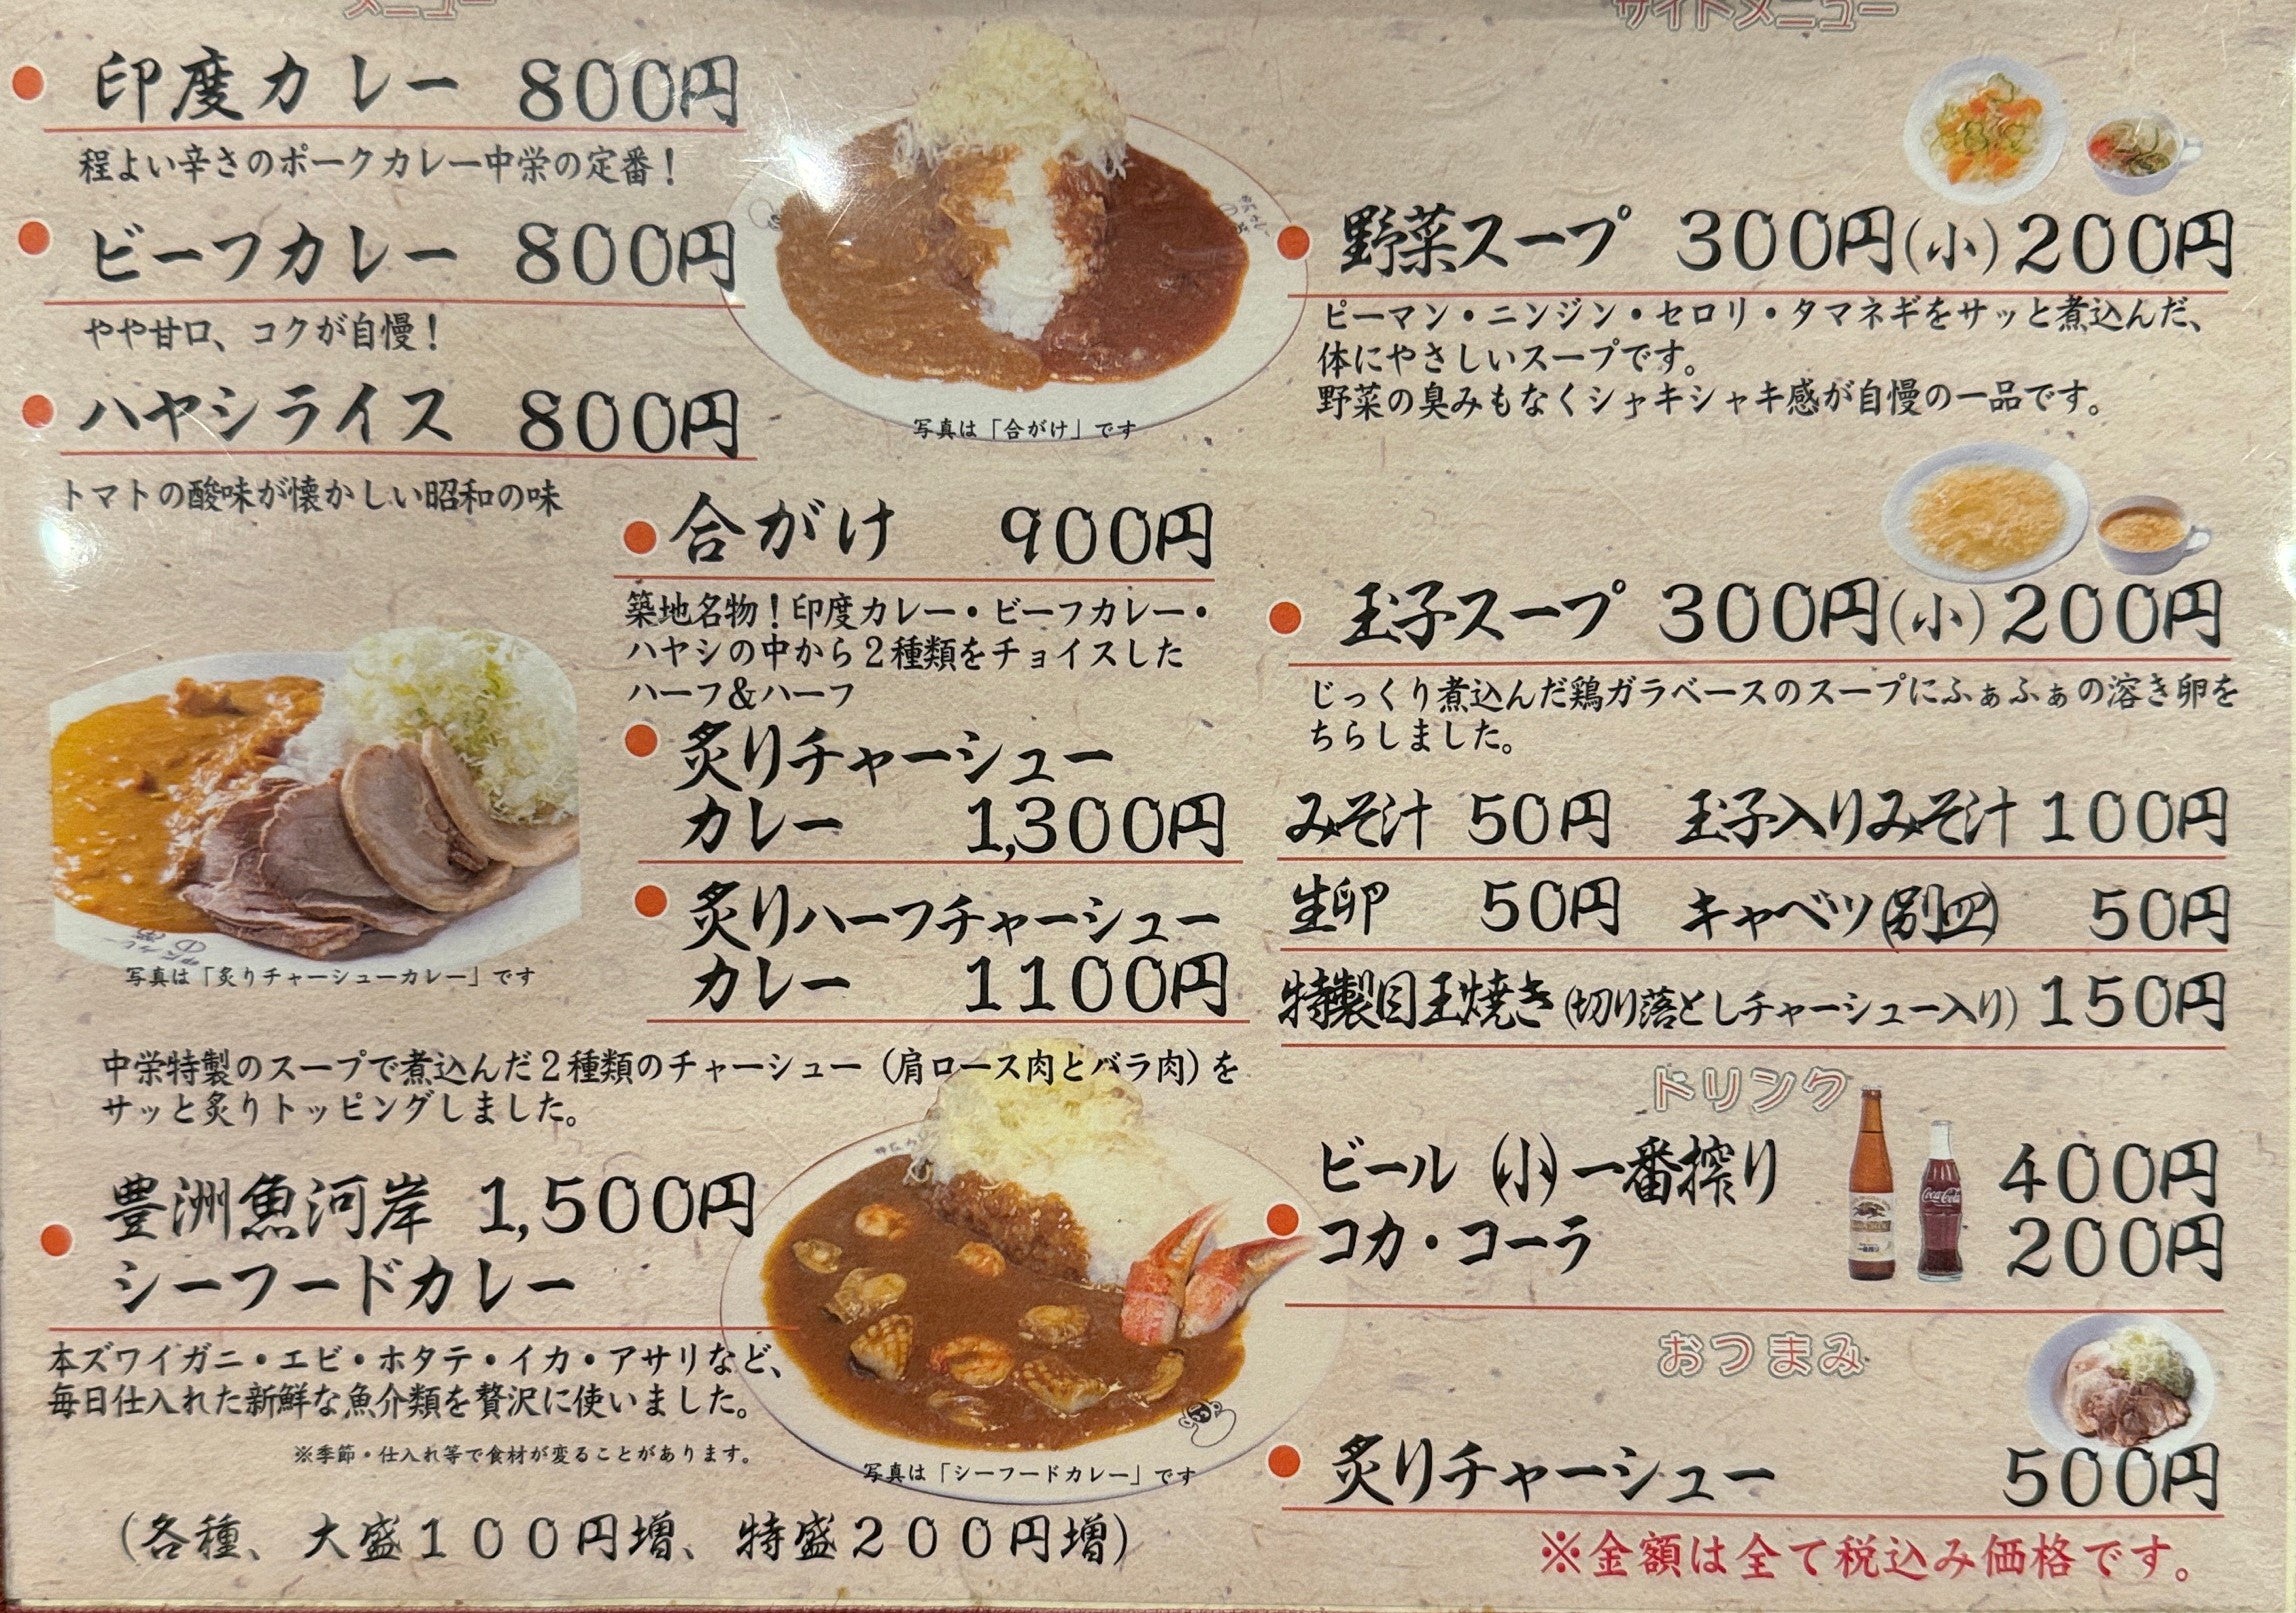 メニュー
印度カレー 800円
程よい辛さのポークカレー中栄の定番！
ビーフカレー 800円
やや甘口、コクが自慢！
ハヤシライス 800円
トマトの酸味が懐かしい昭和の味
写真は「合がけ」です
合がけ 900円
築地名物！印度カレー・ビーフカレー・
ハヤシの中から２種類をチョイスした
ハーフ＆ハーフ
炙りチャーシュー
カレー 1,300円
炙りハーフチャーシュー
カレー 1100円
写真は「炙りチャーシューカレー」です
中栄特製のスープで煮込んだ２種類のチャーシュー（肩ロース肉とバラ肉）を
サッと炙りトッピングしました。
豊洲魚河岸 1,500円
シーフードカレー
本ズワイガニ・エビ・ホタテ・イカ・アサリなど、
毎日仕入れた新鮮な魚介類を贅沢に使いました。
※季節・仕入れ等で食材が変ることがあります。
写真は「シーフードカレー」です
（各種、大盛１００円増、特盛２００円増）
サイドメニュー
野菜スープ 300円（小）200円
ピーマン・ニンジン・セロリ・タマネギをサッと煮込んだ、
体にやさしいスープです。
野菜の臭みもなくシャキシャキ感が自慢の一品です。
玉子スープ 300円（小）200円
じっくり煮込んだ鶏ガラベースのスープにふぁふぁの溶き卵を
ちらしました。
みそ汁 50円 玉子入りみそ汁 100円
生卵 50円 キャベツ（別皿） 50円
特製目玉焼き（切り落としチャーシュー入り）150円
ドリンク
ビール（小）一番搾り 400円
コカ・コーラ 200円
Coca-Cola
おつまみ
炙りチャーシュー 500円
※金額は全て税込み価格です。